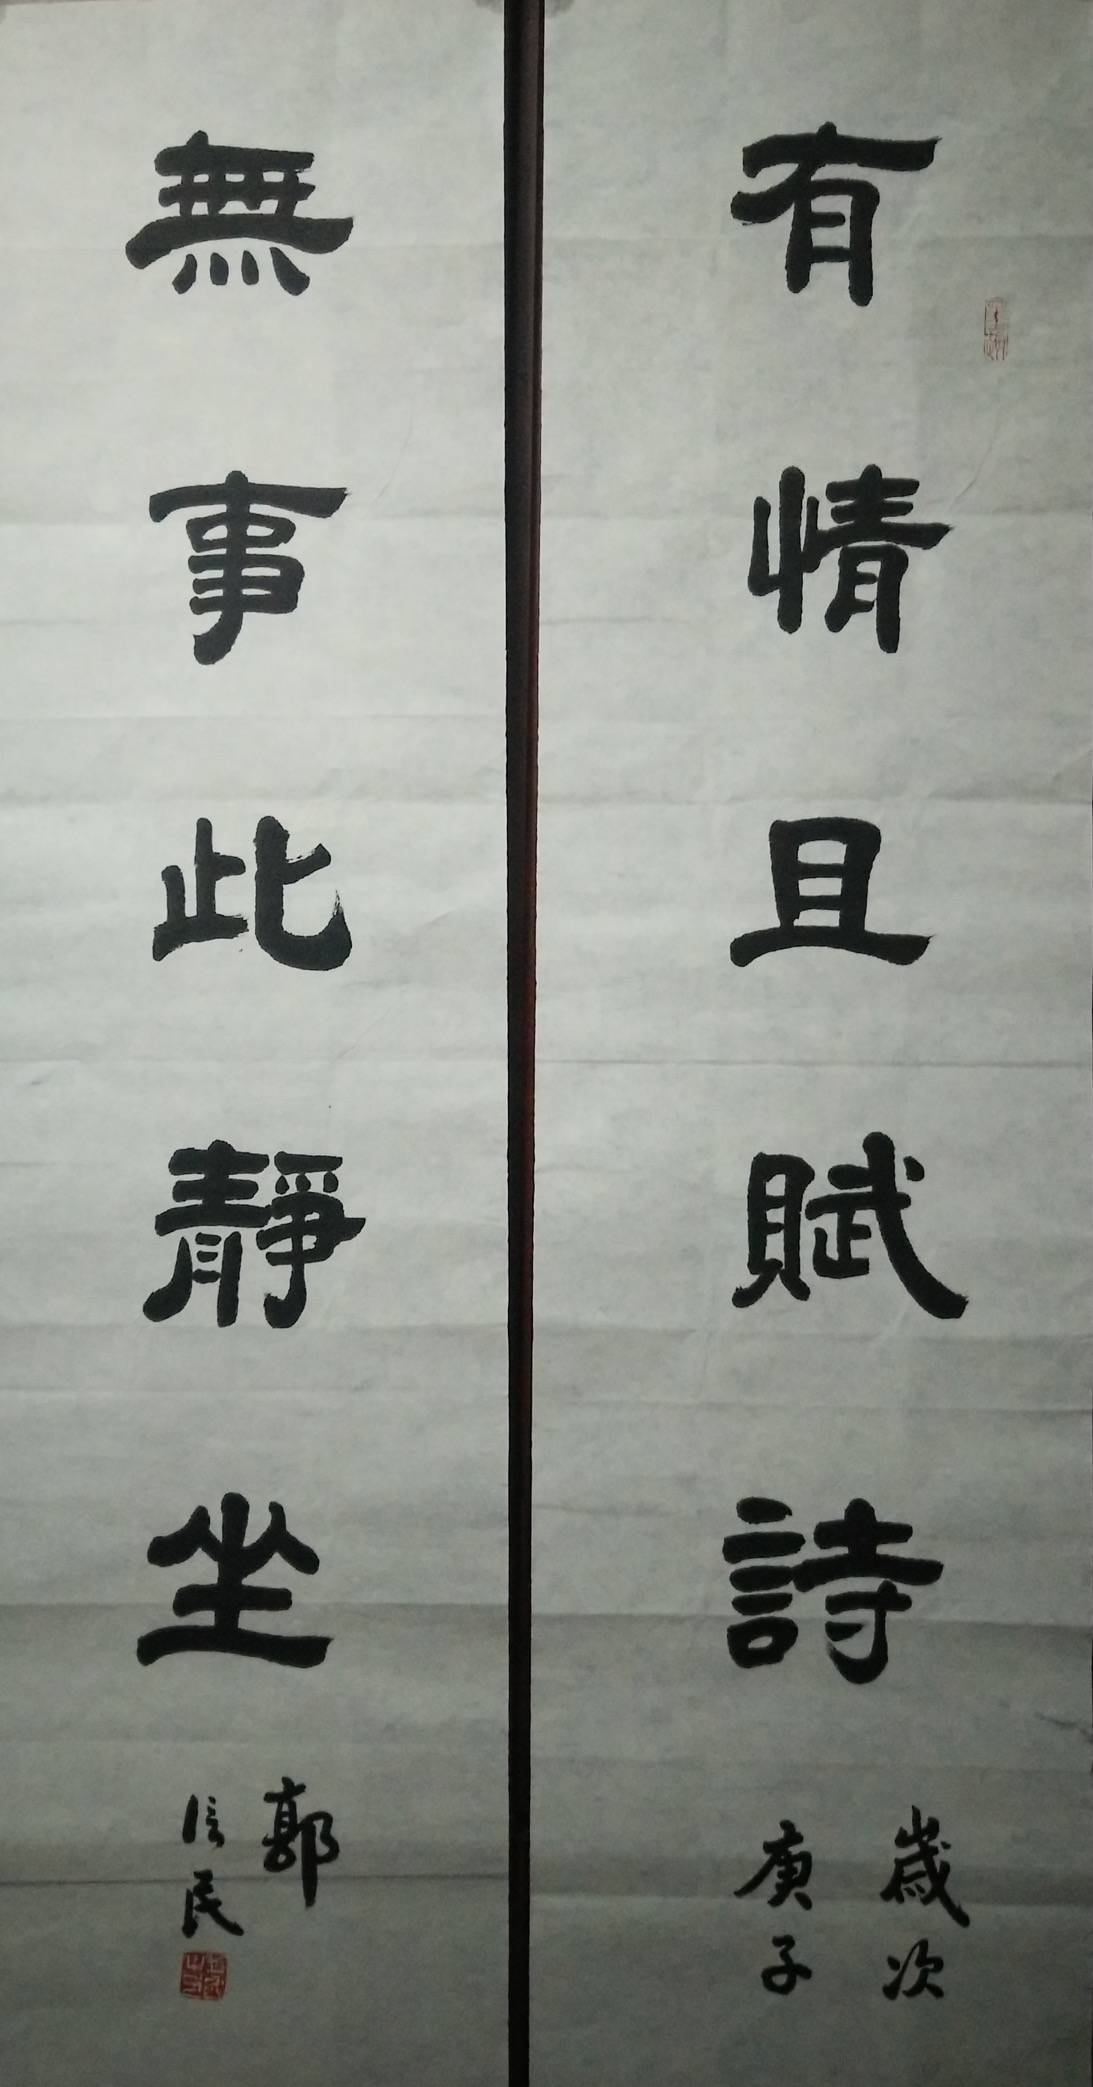 有情且賦詩
歲次
庚子
無事此靜坐
郭
信民